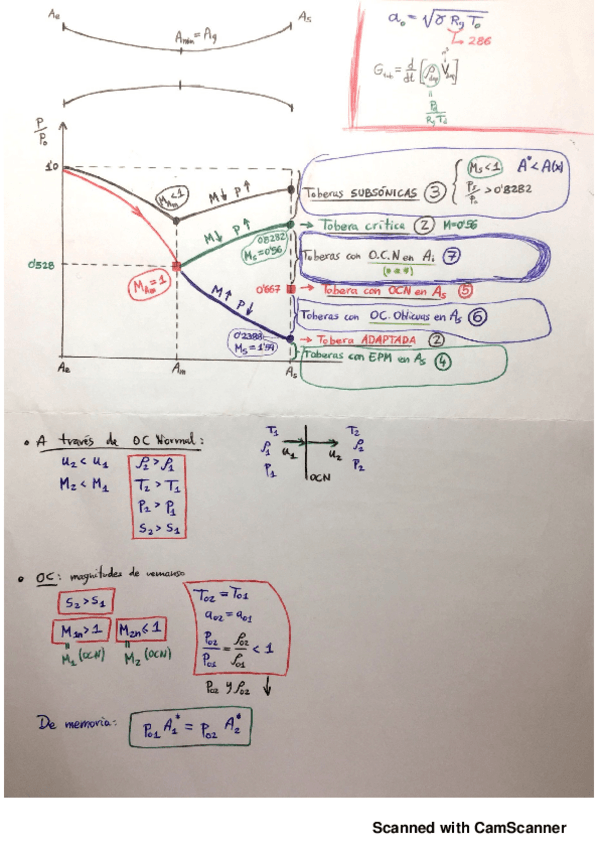 Ae
As
Amin = Ag
a₀ = √(γ Rg T₀)
↳ 286
m³
G = d/dt [ρdep Vdep]
Pd
Rg Td
P/P₀
1'0
0'528
M_Am < 1
M↓ P↑
M_Am = 1
M↓ P↑
0'8282
Ms = 0'56
M↑ P↓
0'667
0'2388
Ms = 1'54
Ae
Am
As
Toberas SUBSÓNICAS ③ { Ms < 1 A* < A(x)
Ps/P₀ > 0'8282
→ Tobera crítica ② M = 0'56
Toberas con O.C.N en Ai ⑦
→ Tobera con OCN en As ⑤
Toberas con OC. Oblicuas en As ⑥
→ Tobera ADAPTADA ②
Toberas con EPM en As ④
• A través de OC Normal:
u₂ < u₁
M₂ < M₁
ρ₂ > ρ₁
T₂ > T₁
P₂ > P₁
S₂ > S₁
T₁
ρ₁
P₁
u₁
u₂
OCN
T₂
ρ₂
P₂
• OC: magnitudes de remanso
S₂ > S₁
M₁n > 1
M₂n ≤ 1
M₁ (OCN)
M₂ (OCN)
T₀₂ = T₀₁
a₀₂ = a₀₁
P₀₂/P₀₁ = ρ₀₂/ρ₀₁ < 1
P₀₂ y ρ₀₂ ↓
De memoria: P₀₁ A₁* = P₀₂ A₂*
Scanned with CamScanner